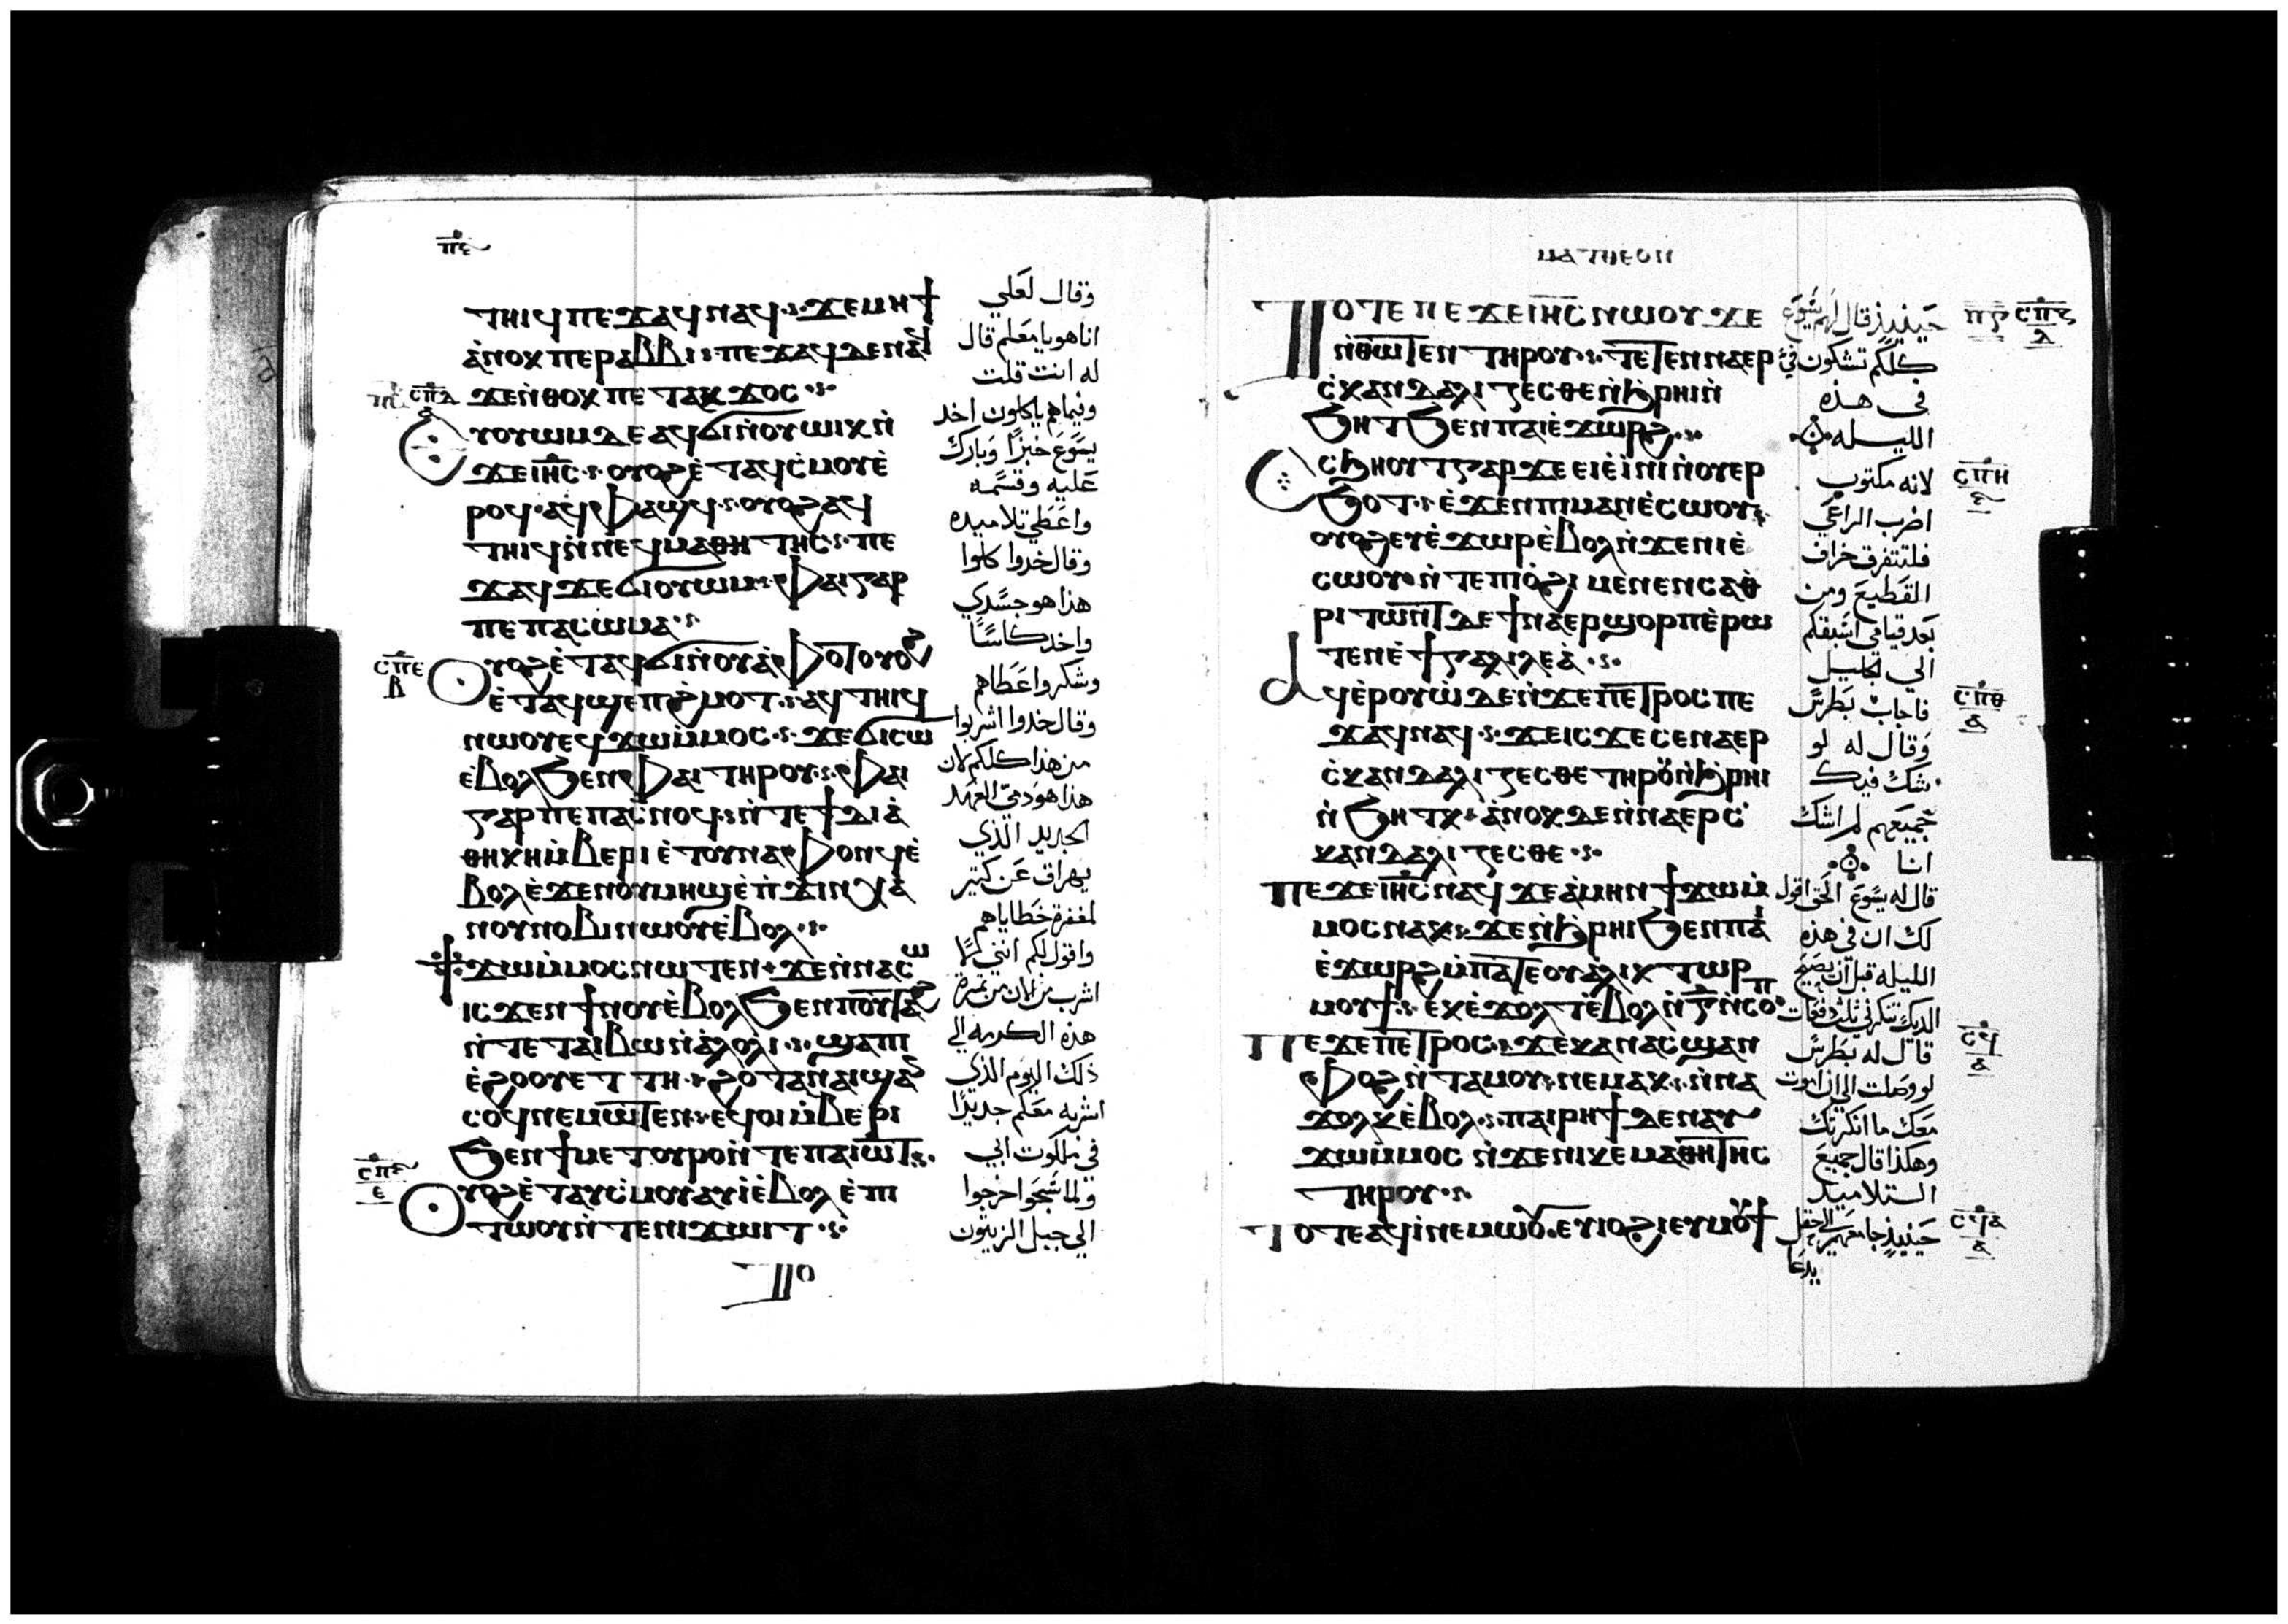 ⲡⲋ
ⲧⲏⲓϥ ⲡⲉϫⲁϥ ⲛⲁϥ ϫⲉ ⲙⲏϯ
ⲁⲛⲟⲕ ⲡⲉ ⲣⲁⲃⲃⲓ ⲡⲉϫⲁϥ ⲇⲉ ⲛⲁϥ
ϫⲉ ⲛⲑⲟⲕ ⲡⲉⲧⲁⲕϫⲟⲥ
ⲥⲡⲇ
ⲩⲟⲩⲱⲙ ⲇⲉ ⲁϥϭⲓ ⲛⲟⲩⲱⲓⲕ ⲛ
ϫⲉ ⲓⲏⲥ ⲟⲩⲟϩ ⲉⲧⲁϥⲥⲙⲟⲩ ⲉ
ⲣⲟϥ ⲁϥⲫⲁϣϥ ⲟⲩⲟϩ ⲁϥ
ⲧⲏⲓϥ ⲛⲛⲉϥⲙⲁⲑⲏⲧⲏⲥ ⲡⲉ
ϫⲁϥ ϫⲉ ϭⲓ ⲟⲩⲱⲙ ⲫⲁⲓ ⲅⲁⲣ
ⲡⲉ ⲡⲁⲥⲱⲙⲁ
ⲥⲡⲉ
ⲃ
ⲟⲩⲟϩ ⲉⲧⲁϥϭⲓ ⲛⲟⲩⲁⲫⲟⲧ ⲟⲩⲟϩ
ⲉⲧⲁϥϣⲉⲡϩⲙⲟⲧ ⲁϥⲧⲏⲓϥ
ⲛⲱⲟⲩ ⲉϥϫⲱ ⲙⲙⲟⲥ ϫⲉ ϭⲓ ⲥⲱ
ⲉⲃⲟⲗ ϧⲉⲛ ⲫⲁⲓ ⲧⲏⲣⲟⲩ ⲫⲁⲓ
ⲅⲁⲣ ⲡⲉ ⲡⲁⲥⲛⲟϥ ⲛⲧⲉ ϯⲇⲓⲁ
ⲑⲏⲕⲏ ⲙⲃⲉⲣⲓ ⲉⲧⲟⲩⲛⲁⲫⲟⲛϥ ⲉ
ⲃⲟⲗ ⲉϫⲉⲛ ⲟⲩⲙⲏϣ ⲉⲡϫⲓⲛⲭⲁ
ⲛⲟⲩⲛⲟⲃⲓ ⲛⲱⲟⲩ ⲉⲃⲟⲗ
ϯϫⲱ ⲙⲙⲟⲥ ⲛⲱⲧⲉⲛ ϫⲉ ⲛⲛⲁⲥⲱ
ⲓⲥϫⲉⲛ ϯⲛⲟⲩ ⲉⲃⲟⲗ ϧⲉⲛ ⲡⲟⲩⲧⲁϩ
ⲛⲧⲉ ⲧⲁⲓⲃⲱ ⲛⲁⲗⲟⲗⲓ ϣⲁ ⲡⲓ
ⲉϩⲟⲟⲩ ⲉⲧⲧⲏ ϩⲟⲧⲁⲛ ⲁⲓϣⲁⲛ
ⲥⲟϥ ⲛⲉⲙⲱⲧⲉⲛ ⲉϥⲟⲓ ⲙⲃⲉⲣⲓ
ϧⲉⲛ ϯⲙⲉⲧⲟⲩⲣⲟ ⲛⲧⲉ ⲡⲁⲓⲱⲧ
ⲥⲡⲋ
ⲟⲩⲟϩ ⲉⲧⲁⲩⲥⲙⲟⲩ ⲁⲩⲓ ⲉⲃⲟⲗ ⲉⲡⲓ
ⲧⲱⲟⲩ ⲛⲧⲉ ⲛⲓϫⲱⲓⲧ
ⲧⲟ
وقال لعلي
انا هو يا معلم قال
له انت قلت
وفيما هم ياكلون اخد
يسوع خبزا وبارك
عليه وقسمه
واعطي تلاميده
وقال خدوا كلوا
هدا هو جسدي
واخد كاسا
وشكر واعطاهم
وقال خدوا اشربوا
من هدا كلكم لان
هدا هو دمي العهد
الجديد الذي
يهراق عن كتير
لمغفرة خطاياهم
واقول لكم انني لا
اشرب من الان من تمرة
هذه الكرمه الي
ذلك اليوم الذي
اشربه معكم جديدا
في ملكوت ابي
ولما سبحوا خرجوا
الي جبل الزيتون
ⲙⲁⲧⲑⲉⲟⲛ
ⲧⲟⲧⲉ ⲡⲉϫⲉ ⲓⲏⲥ ⲛⲱⲟⲩ ϫⲉ
ⲛⲑⲱⲧⲉⲛ ⲧⲏⲣⲟⲩ ⲧⲉⲧⲉⲛⲛⲁⲉⲣ
ⲥⲕⲁⲛⲇⲁⲗⲓⲍⲉⲥⲑⲉ ⲛϧⲣⲏⲓ ⲛ
ϧⲏⲧ ϧⲉⲛ ⲡⲁⲓⲉϫⲱⲣϩ
ⲥϧⲏⲟⲩⲧ ⲅⲁⲣ ϫⲉ ⲉⲓⲉⲓⲛⲓ ⲛⲟⲩⲉⲣ
ϧⲟⲧ ⲉϫⲉⲛ ⲡⲓⲙⲁⲛⲉⲥⲱⲟⲩ
ⲟⲩⲟϩ ⲉⲩⲉϫⲱⲣ ⲉⲃⲟⲗ ⲛϫⲉ ⲛⲓⲉ
ⲥⲱⲟⲩ ⲛⲧⲉ ⲡⲓⲟϩⲓ ⲙⲉⲛⲉⲛⲥⲁ ⲑ
ⲣⲓⲧⲱⲛⲧ ⲇⲉ ϯⲛⲁⲉⲣϣⲟⲣⲡ ⲉⲣⲱ
ⲧⲉⲛ ⲉϯⲅⲁⲗⲓⲗⲉⲁ
ⲁϥⲉⲣⲟⲩⲱ ⲇⲉ ⲛϫⲉ ⲡⲉⲧⲣⲟⲥ ⲡⲉ
ϫⲁϥ ⲛⲁϥ ϫⲉ ⲓⲥϫⲉ ⲥⲉⲛⲁⲉⲣ
ⲥⲕⲁⲛⲇⲁⲗⲓⲍⲉⲥⲑⲉ ⲧⲏⲣⲟⲩ ⲛϧⲣⲏⲓ
ⲛϧⲏⲧⲕ ⲁⲛⲟⲕ ⲇⲉ ⲛⲛⲁⲉⲣⲥ
ⲕⲁⲛⲇⲁⲗⲓⲍⲉⲥⲑⲉ
ⲡⲉϫⲉ ⲓⲏⲥ ⲛⲁϥ ϫⲉ ⲁⲙⲏⲛ ϯϫⲱ ⲙ
ⲙⲟⲥ ⲛⲁⲕ ϫⲉ ⲛϧⲣⲏⲓ ϧⲉⲛ ⲡⲁⲓ
ⲉϫⲱⲣϩ ⲙⲡⲁⲧⲉ ⲟⲩⲁⲗⲉⲕⲧⲱⲣ
ⲙⲟⲩϯ ⲉⲕⲉϫⲟⲗⲧ ⲉⲃⲟⲗ ⲛⲅ ⲛⲥⲟⲡ
ⲡⲉϫⲉ ⲡⲉⲧⲣⲟⲥ ϫⲉ ⲕⲁⲛ ⲁⲥϣⲁⲛ
ⲫⲟϩ ⲛⲧⲁⲙⲟⲩ ⲛⲉⲙⲁⲕ ⲛⲛⲁ
ϫⲟⲗⲕ ⲉⲃⲟⲗ ⲡⲁⲓⲣⲏϯ ⲇⲉ ⲛⲁⲩ
ϫⲱ ⲙⲙⲟⲥ ⲛϫⲉ ⲛⲓⲕⲉⲙⲁⲑⲏⲧⲏⲥ
ⲧⲏⲣⲟⲩ
ⲧⲟⲧⲉ ⲁϥⲓ ⲛⲉⲙⲱⲟⲩ ⲉⲩⲓⲟϩⲓ ⲉⲩⲙⲟⲩϯ
حينيذ قال لهم يسوع
كلكم تشكون في
في هذه
الليله
لانه مكتوب
اضرب الراعي
فلتتفرق خراف
القطيع ومن
بعد قيامي اسبقكم
الي الجليل
فاجاب بطرس
وقال له لو
شك فيك
جميعهم لم اشك
انا
قال له يسوع الحق اقول
لك ان في هذه
الليله قبل ان يصيح
الديك تنكرني ثلث دفعات
قال له بطرس
لو وصلت الي ان اموت
معك ما انكرتك
وهكذا قال جميع
التلاميد
حينيذ جا معهم الي حقل
يدعا
ⲥⲡⲍ
ⲥⲡⲏ
ⲋ
ⲥⲡⲑ
ⲁ
ⲥϥ
ⲁ
ⲥϥⲁ
ⲁ